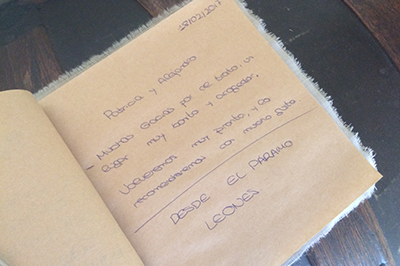 18/02/2017
Patricia y Alejandro
- Muchas Gracias por el trato, un
lugar muy bonito y acogedor,
Volveremos muy pronto, y lo
recomendaremos con mucho gusto
DESDE EL PARAMO
LEONES